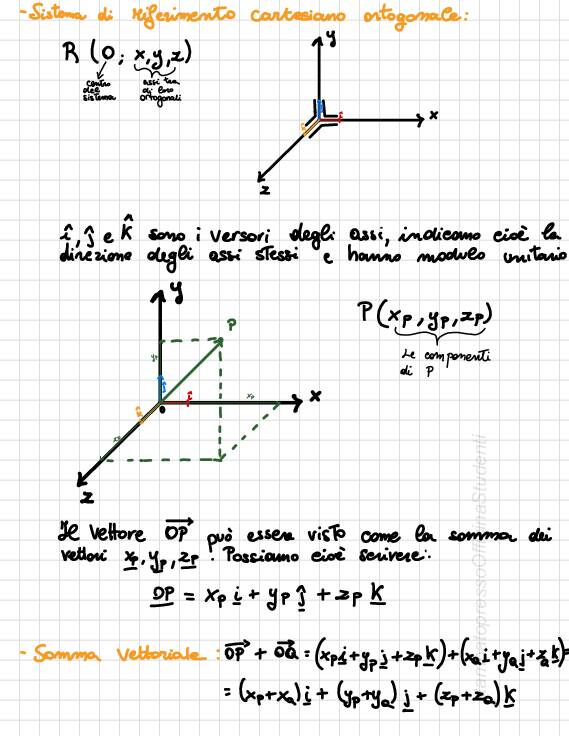 - Sistema di riferimento cartesiano ortogonale:
R (O; x,y,z)
centro del sistema
assi tra di loro ortogonali
y
x
z
î, ĵ e k̂ sono i versori degli assi, indicano cioè la
direzione degli assi stessi e hanno modulo unitario
y
P
P(xP, yP, zP)
Le componenti
di P
yP
ĵ
î
xP
x
k̂
O
zP
z
Il vettore OP può essere visto come la somma dei
vettori xP, yP, zP. Possiamo cioè scrivere:
OP = xP i + yP j + zP k
- Somma vettoriale: OP + OQ = (xP i + yP j + zP k) + (xQ i + yQ j + zQ k) =
= (xP+xQ) i + (yP+yQ) j + (zP+zQ) k